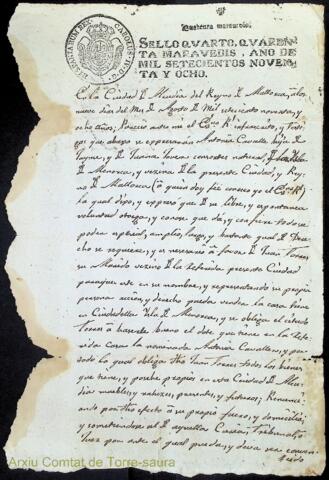 Quarenta maravedis.
SELLO QVARTO, QVAREN-
TA MARAVEDIS, AÑO DE
MIL SETECIENTOS NOVEN-
TA Y OCHO.
CAROLUS IV D. G. HISPANIARUM REX
En la Ciudad de Alcudia del Reyno de Mallorca, a los
nueve dias del Mes de Agosto de Mil setecientos noventa, y
ocho años; Ante mi el Esno Rl infraescrito, y testi-
gos que abaxo se expresarán Antonia Cavaller hija de
Jayme, y de Juana consortes natural de
de Menorca, y vezina de la presente Ciudad, y Rey-
no de Mallorca (a quien doy feé conosco yo el Esno Rl)
la qual dixo, y expresó que de su libre, y espontanea
voluntad otorga, y conoce que dá, y confiere todo su
poder especial, amplio, largo, y bastante qual de Dro-
cho se requiere, y es necesario a favor de Juan Torres
su Marido vezino de la referida presente Ciudad
para que este en su nombre, y representando su propia
persona accion, y derecho pueda vender la casa
en Ciudadella Isla de Menorca, y se obliga el citado
Torres a hacerle bueno el dote que tiene en la refe-
rida casa la nominada Antonia Cavaller, y por
todo lo qual obliga dho Juan Torres todos los bienes
que tiene, y posehe propios en esta Ciudad de Alcu-
dia muebles, y rahizes, presentes, y futuros; Renunci-
ando por dho efecto a su propio fuero, y domicilio;
y sometiendose al de aquella Curia, Tribunal, o
Juez por ante el qual pueda, y deva ser conve-
nido
Arxiu Comtat de Torre-saura